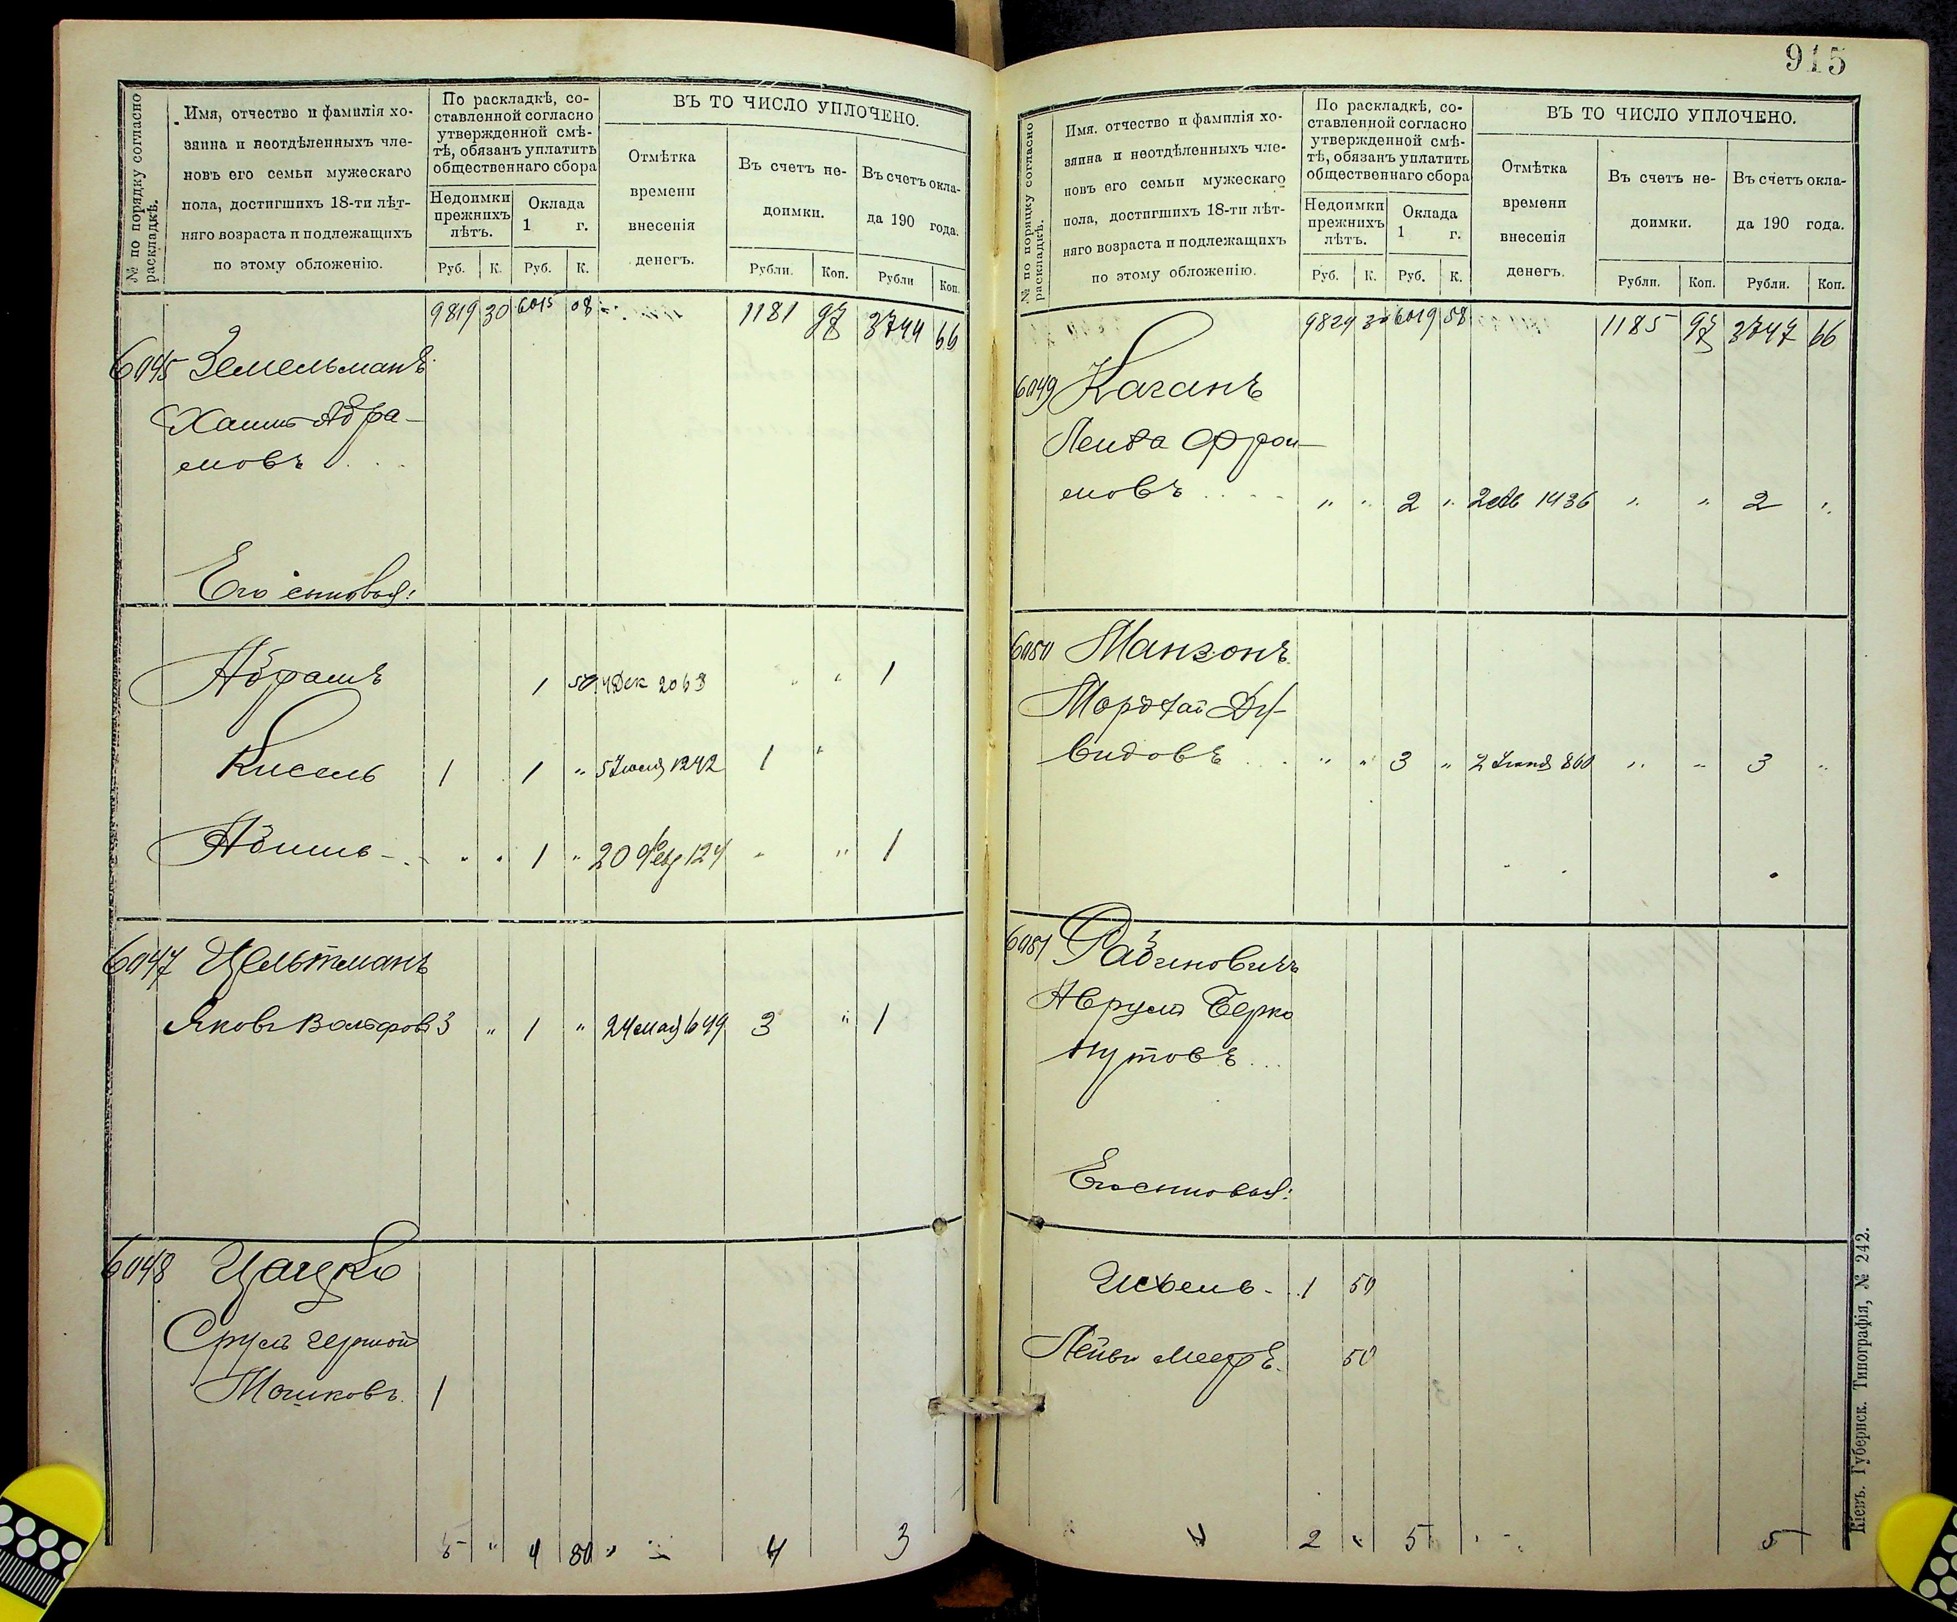 № по порядку согласно раскладкѣ.
Имя, отчество и фамилія хо-
зяина и неотдѣленныхъ чле-
новъ его семьи мужескаго
пола, достигшихъ 18-ти лѣт-
няго возраста и подлежащихъ
по этому обложенію.
По раскладкѣ, со-
ставленной согласно
утвержденной смѣ-
тѣ, обязанъ уплатить
общественнаго сбора
Недоимки
прежнихъ
лѣтъ.
Оклада
1 г.
Руб. К. Руб. К.
ВЪ ТО ЧИСЛО УПЛОЧЕНО.
Отмѣтка
времени
внесенія
денегъ.
Въ счетъ не-
доимки.
Рубли. Коп.
Въ счетъ окла-
да 190 года.
Рубли Коп.
9819 30 6015 08 1181 97 3744 66
6045 Земельманъ
Хаимъ Абра-
мовъ
Его сыновья:
Абрамъ 1 50 4 Дек 2063 " " 1
Кисель 1 1 " 5 Іюля 1242 1 "
Абишъ " " 1 " 20 Февр 124 " " 1
6047 Цельтманъ
Яковъ Вольфовъ 3 " 1 " 24 мая 649 3 " 1
6048 Цацко
Сруль Гершон
Мошковъ. 1
5 " 4 50 " 4 3
915
№ по порядку согласно раскладкѣ.
Имя. отчество и фамилія хо-
зяина и неотдѣленныхъ чле-
новъ его семьи мужескаго
пола, достигшихъ 18-ти лѣт-
няго возраста и подлежащихъ
по этому обложенію.
По раскладкѣ, со-
ставленной согласно
утвержденной смѣ-
тѣ, обязанъ уплатить
общественнаго сбора
Недоимки
прежнихъ
лѣтъ.
Оклада
1 г.
Руб. К. Руб. К.
ВЪ ТО ЧИСЛО УПЛОЧЕНО.
Отмѣтка
времени
внесенія
денегъ.
Въ счетъ не-
доимки.
Рубли. Коп.
Въ счетъ окла-
да 190 года.
Рубли. Коп.
9824 30 6019 58 1185 97 3747 66
6049 Каганъ
Лейба Фрои-
мовъ " " 2 " 1436 " " 2 "
6050 Манзонъ
Мордхай Да-
видовъ " " 3 " 2 Іюня 800 " " 3 "
6051 Рабиновичъ
Аврумъ Берко
Нутовъ
Его сыновья:
Исхель 1 50
Лейви Мееръ. 50
2 " 5 5
Кіевъ. Губернск. Типографія, № 242.